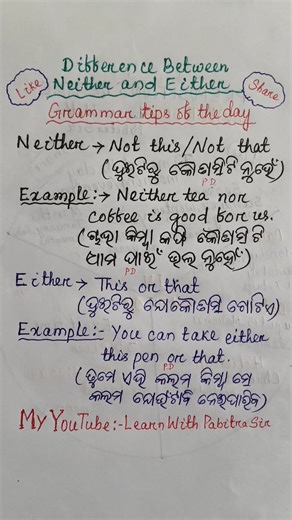 Difference Between
Neither and Either
Like
Share
Grammar tips of the day
Neither → Not this/Not that
(ଦୁଇଟିରୁ କୌଣସିଟି ନୁହେଁ)
PD
Example:→ Neither tea nor
coffee is good for us.
(ଚାହା କିମ୍ବା କଫି କୌଣସିଟି
ଆମ ପାଇଁ ଭଲ ନୁହେଁ)
PD
Either → This or that
(ଦୁଇଟିରୁ ଯେକୌଣସି ଗୋଟିଏ)
Example:- You can take either
this pen or that.
PD
(ତୁମେ ଏହି କଲମ କିମ୍ବା ସେ
କଲମ ଯେଉଁଟାବି ନେଇପାରିବ)
My YouTube:-Learn With Pabitra Sir